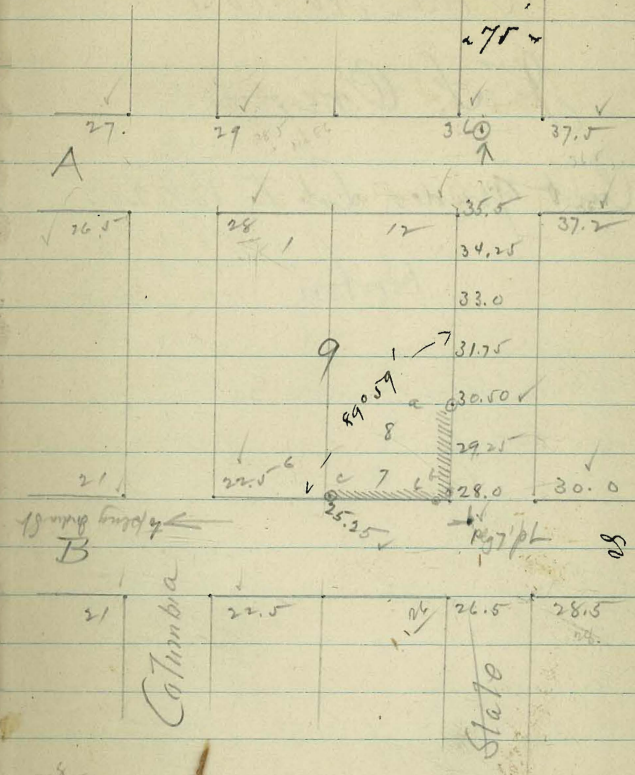 75
27.
29
36
37.5
A
26.5
28
1
12
35.5
37.2
34.25
33.0
9
31.75
89° 59'
a
30.50
8
29.25
21
22.5
6
c
7
b
28.0
30.0
25.25
B
21
22.5
26.5
28.5
Columbia
State